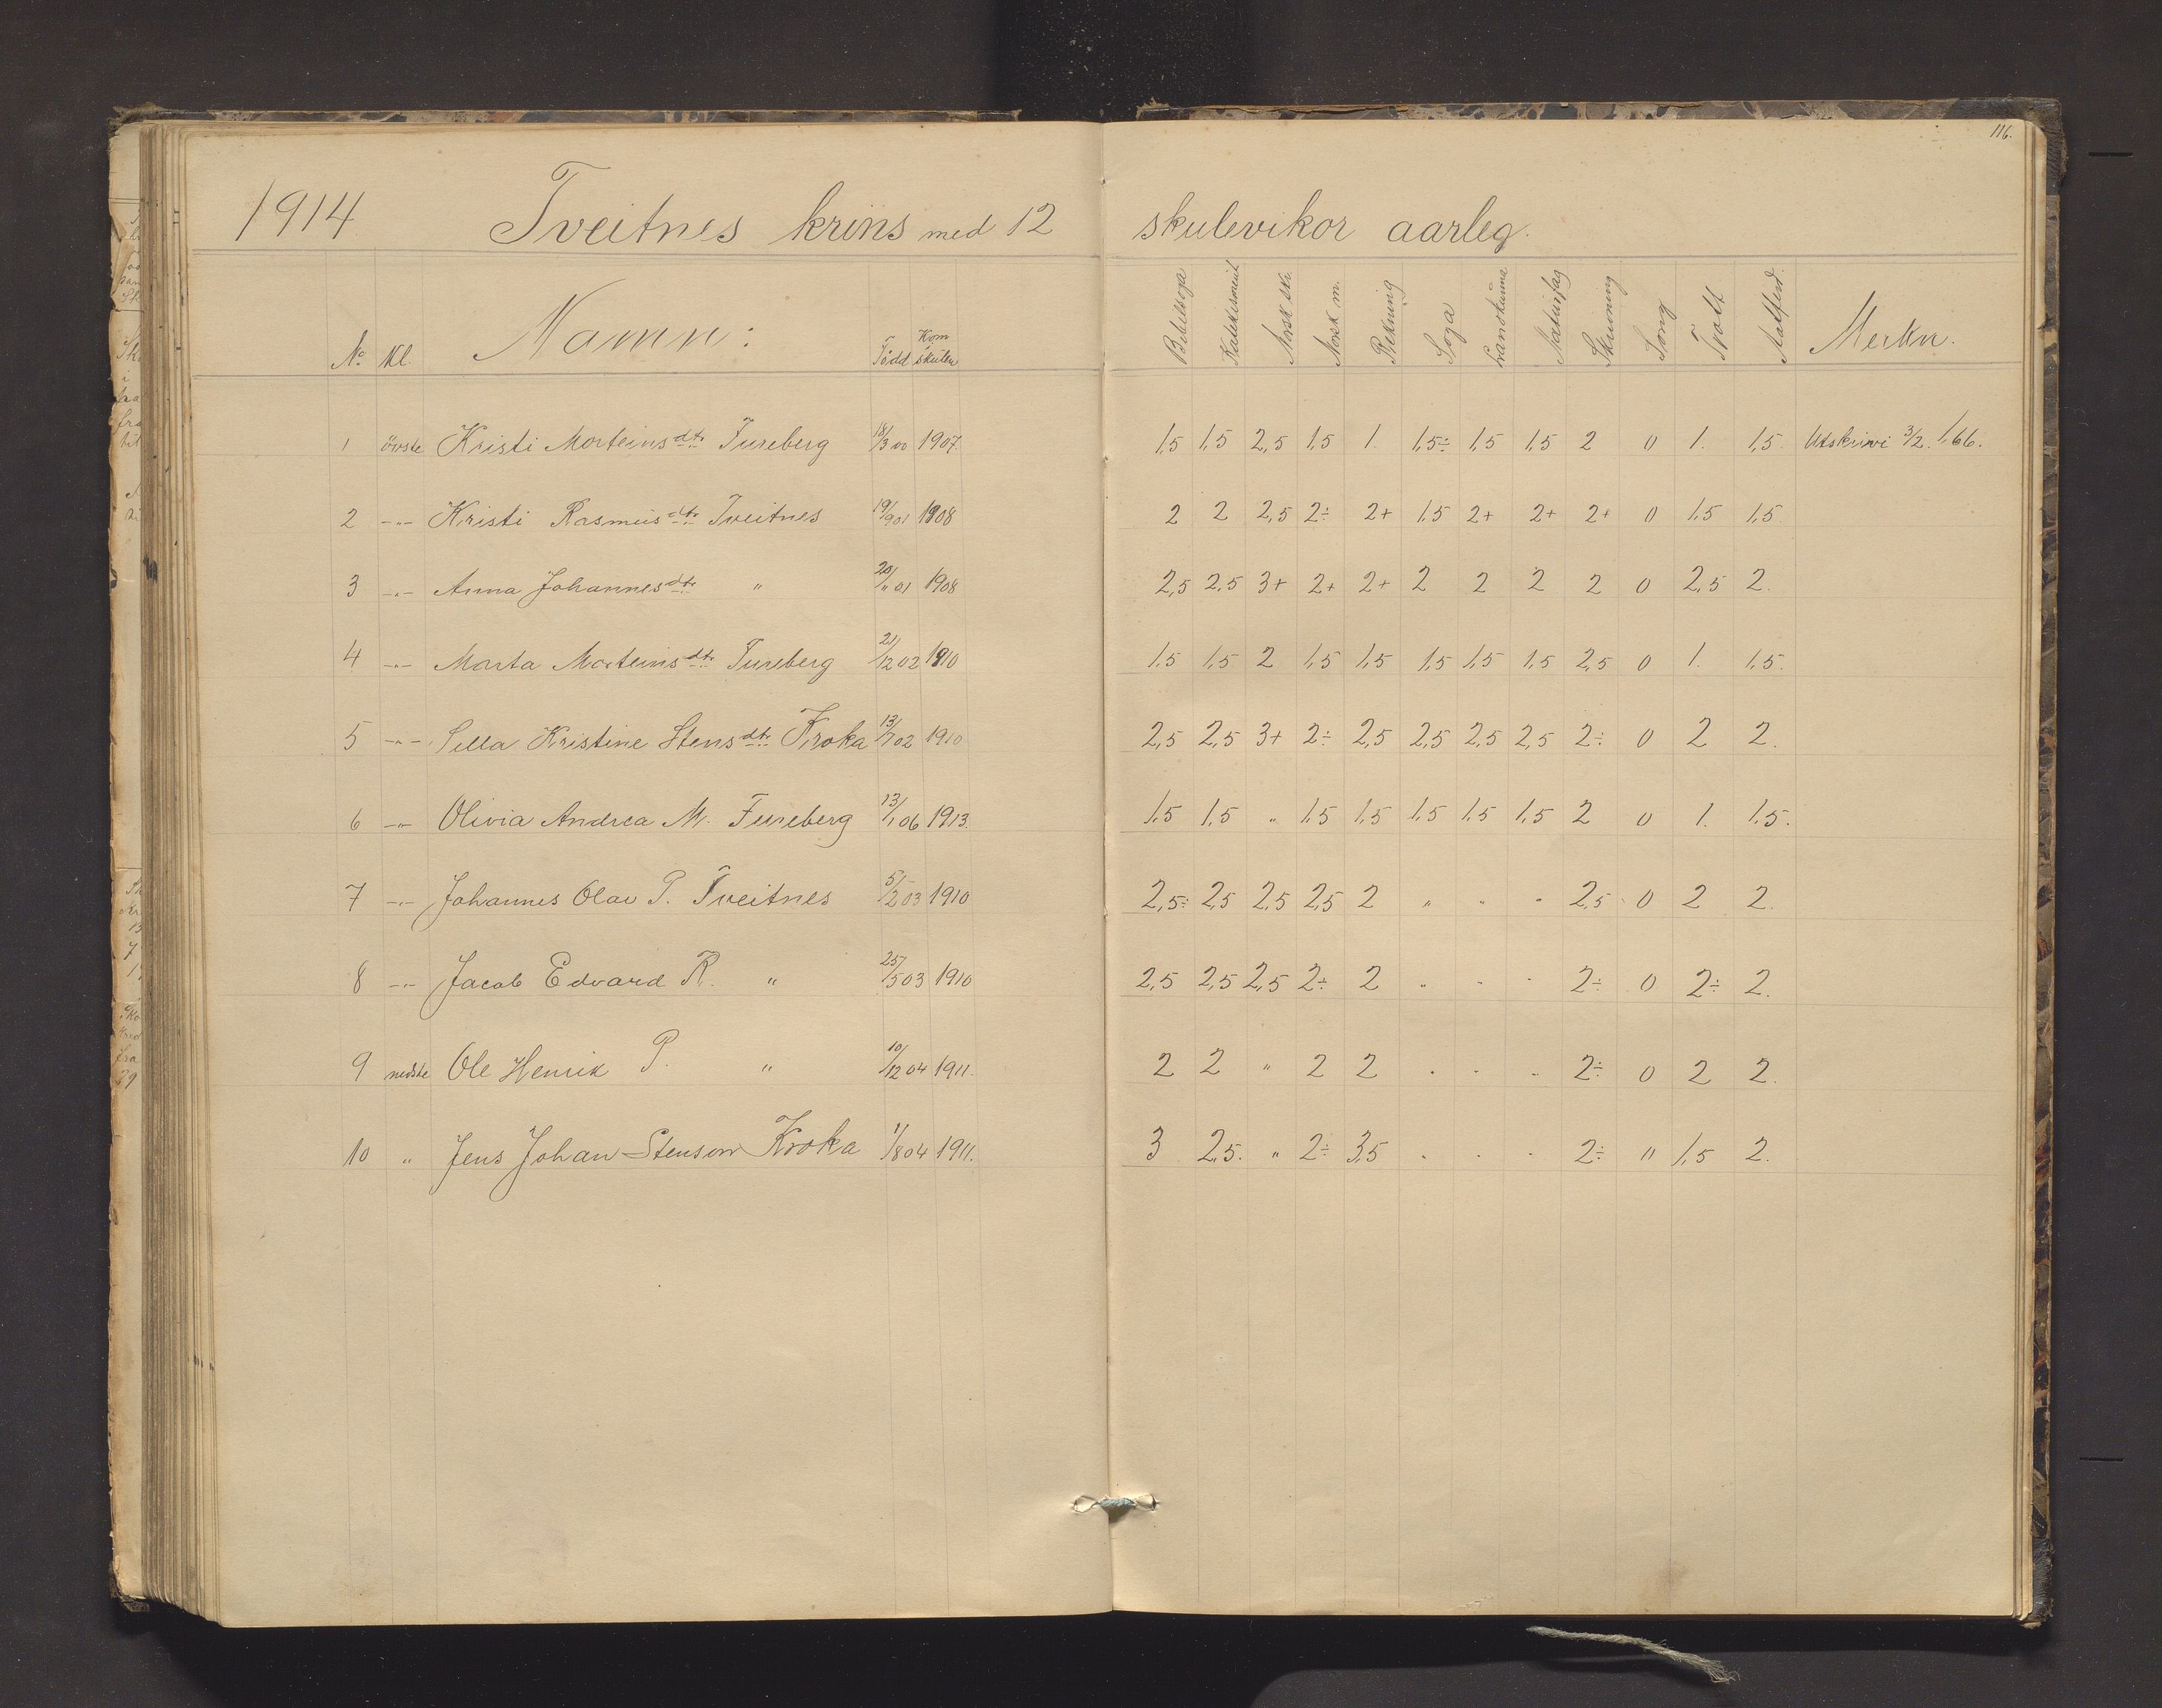 116.
1914 Tveitnes krins med 12 skulevikor aarleg.
No Kl. Namn: Född Kom i skulen Bibelsoga Katekismus Norsk skr. Norsk m. Rekning Soga Landkunna Naturfag Skrivning Song Flatt Aatferd. Merkn.
1 övste Kristi Morteins dtr Fureberg 18/3 00 1907. 1,5 1,5 2,5 1,5 1. 1,5÷ 1,5 1,5 2 0 1. 1,5. Utskrivi 3/2. 1,66.
2 -"- Kristi Rasmus dtr Tveitnes 19/9 01 1908 2 2 2,5 2÷ 2+ 1,5 2+ 2+ 2+ 0 1,5 1,5
3 -"- Anna Johannes dtr " 20/11 01 1908 2,5 2,5 3+ 2+ 2+ 2 2 2 2 0 2,5 2.
4 -"- Marta Morteins dtr Fureberg 21/12 02 1910 1,5 1,5 2 1,5 1,5 1,5 1,5 1,5 2,5 0 1. 1,5.
5 -"- Silla Kristine Stens dtr Kroka 13/7 02 1910 2,5 2,5 3+ 2÷ 2,5 2,5 2,5 2,5 2÷ 0 2 2.
6 -"- Olivia Andrea M. Fureberg 13/1 06 1913. 1,5 1,5 " 1,5 1,5 1,5 1,5 1,5 2 0 1. 1,5.
7 -"- Johannes Olav P. Tveitnes 5/2 03 1910 2,5÷ 2,5 2,5 2,5 2 " " " 2,5 0 2 2.
8 -"- Jacob Edvard R. " 25/5 03 1910 2,5 2,5 2,5 2÷ 2 " " " 2÷ 0 2÷ 2.
9 nedste Ole Henrik P. " 10/12 04 1911. 2 2 " 2 2 " " " 2÷ 0 2 2.
10 " Jens Johan Stenson Kroka 1/8 04 1911. 3 2,5. " 2÷ 3,5 " " " 2÷ " 1,5 2.